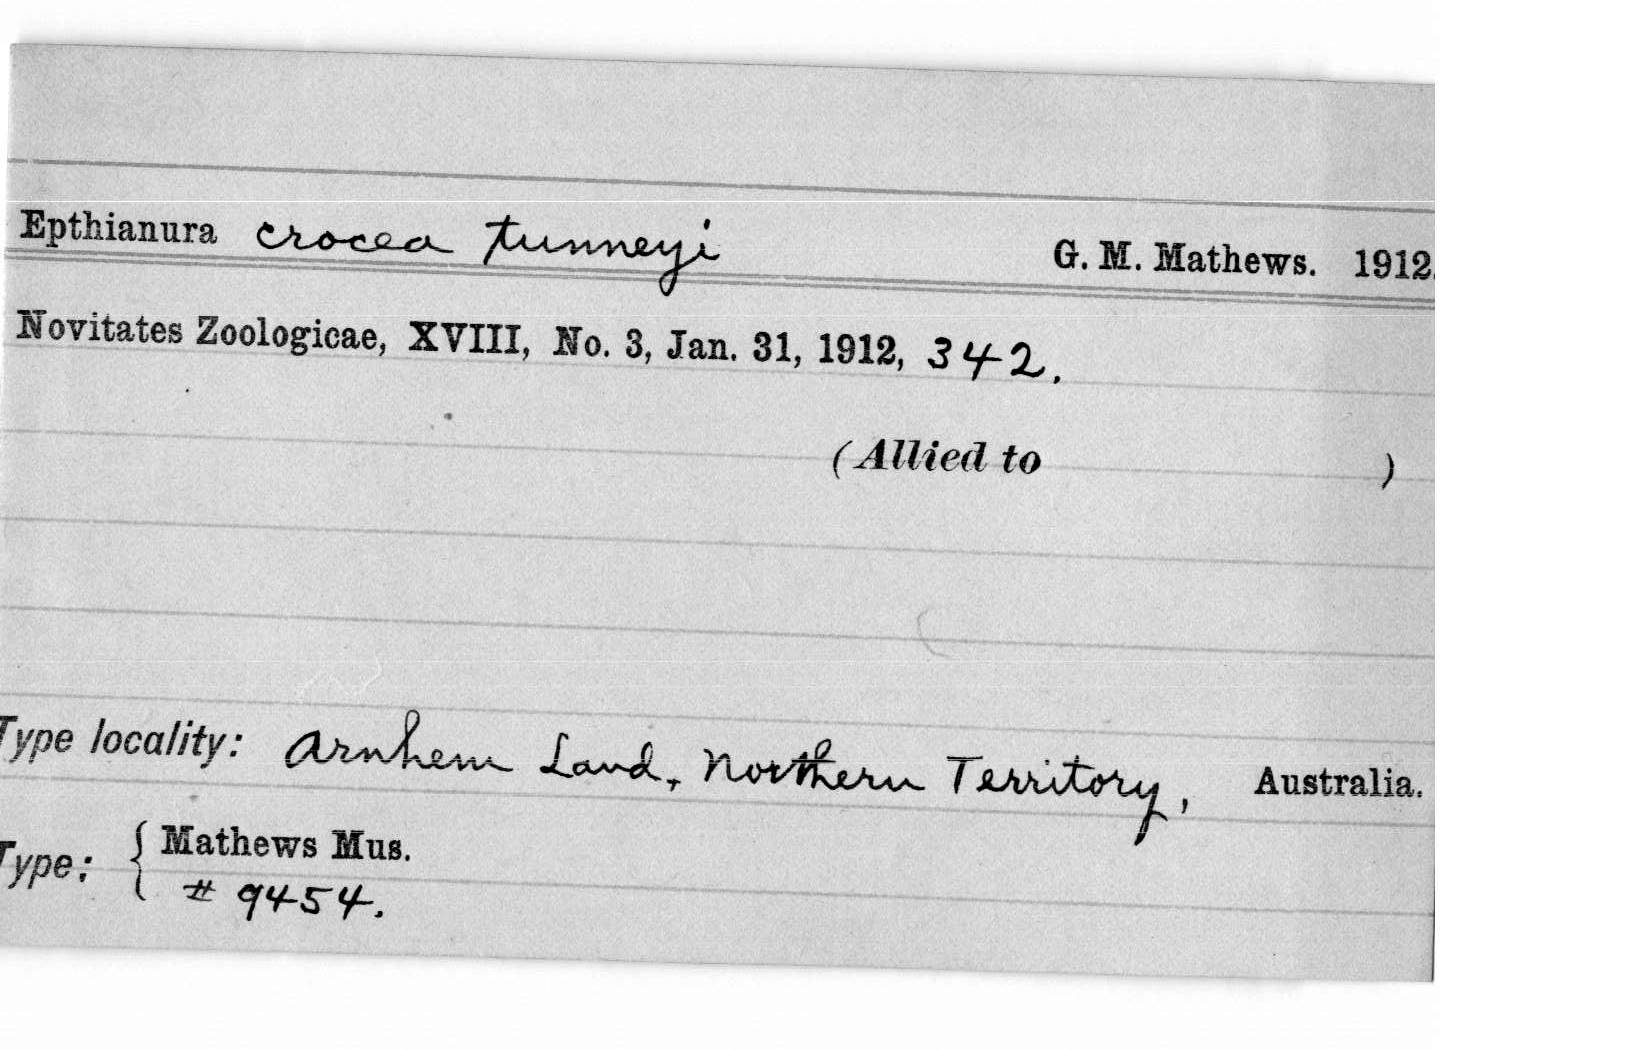 Epthianura crocea tunneyi G. M. Mathews. 1912.
Novitates Zoologicae, XVIII, No. 3, Jan. 31, 1912, 342.
(Allied to )
Type locality: Arnhem Land, Northern Territory, Australia.
Type: { Mathews Mus.
# 9454.